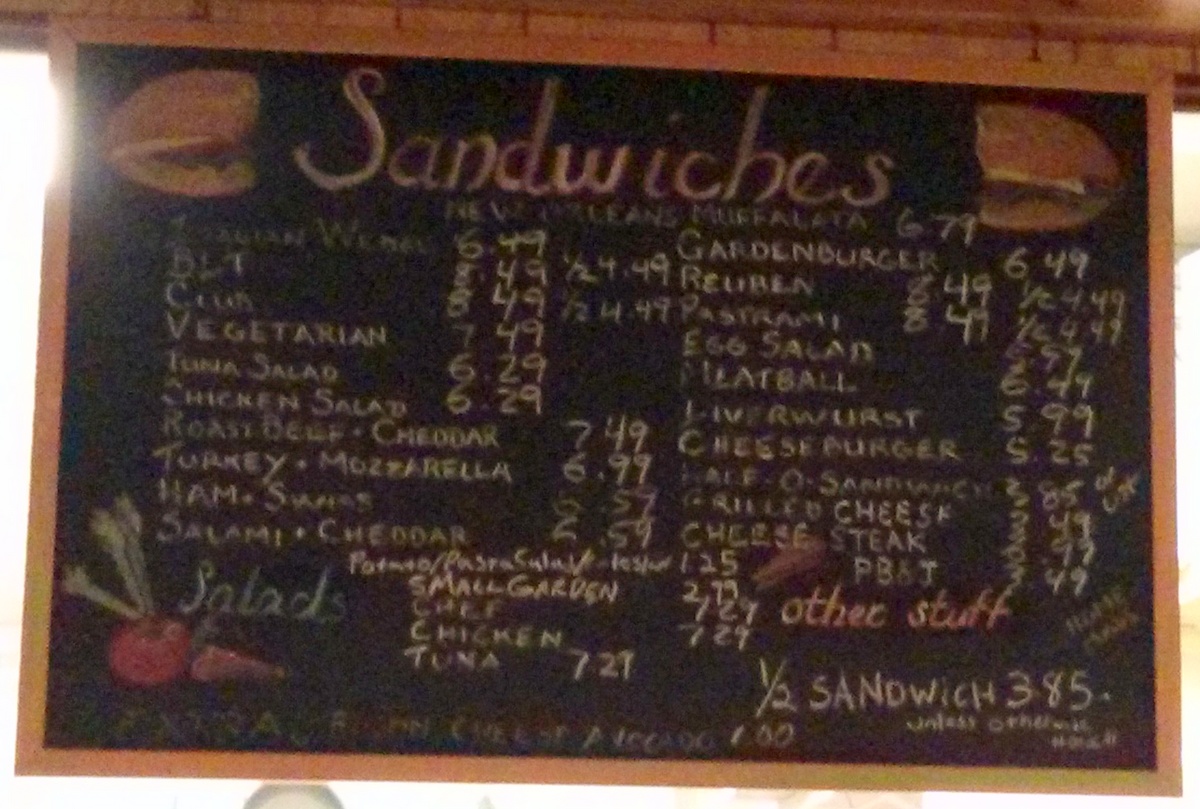 Sandwiches
NEW ORLEANS MUFFALATA 6.79
6.49
BLT 8.49 1/2 4.49
CLUB 8.49 1/2 4.49
VEGETARIAN 7.49
TUNA SALAD 6.29
CHICKEN SALAD 6.29
ROAST BEEF + CHEDDAR 7.49
TURKEY + MOZZARELLA 6.99
HAM + SWISS
SALAMI + CHEDDAR
GARDENBURGER 6.49
REUBEN 8.49 1/2 4.49
PASTRAMI 8.49 1/2 4.49
EGG SALAD
MEATBALL 6.49
LIVERWURST 5.99
CHEESEBURGER 5.25
HALF-O-SANDWICH
GRILLED CHEESE
CHEESE STEAK
PB&J
other stuff
Salads
Potato/Pasta Salad 1.25
SMALL GARDEN 2.79
CHEF 7.29
CHICKEN 7.29
TUNA 7.29
1/2 SANDWICH 3.85
unless otherwise
EXTRA CHEESE AVOCADO 1.00